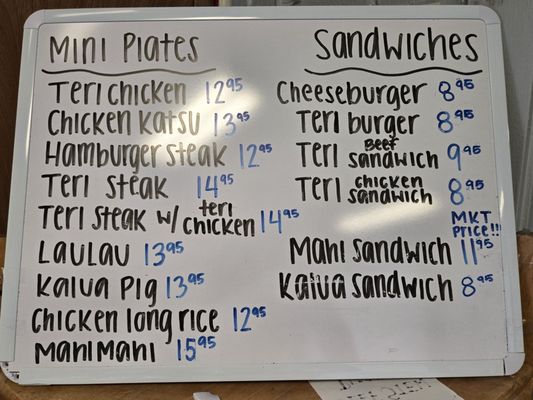 MINI PLATES
TERI CHICKEN 12.95
CHICKEN KATSU 13.95
HAMBURGER STEAK 12.95
TERI STEAK 14.95
TERI STEAK W/ TERI CHICKEN 14.95
LAULAU 13.95
KALUA PIG 13.95
CHICKEN LONG RICE 12.95
MAHI MAHI 15.95
SANDWICHES
CHEESEBURGER 8.95
TERI BURGER 8.95
TERI BEEF SANDWICH 9.95
TERI CHICKEN SANDWICH 8.95
MKT
PRICE!!!
MAHI SANDWICH 11.95
KALUA SANDWICH 8.95